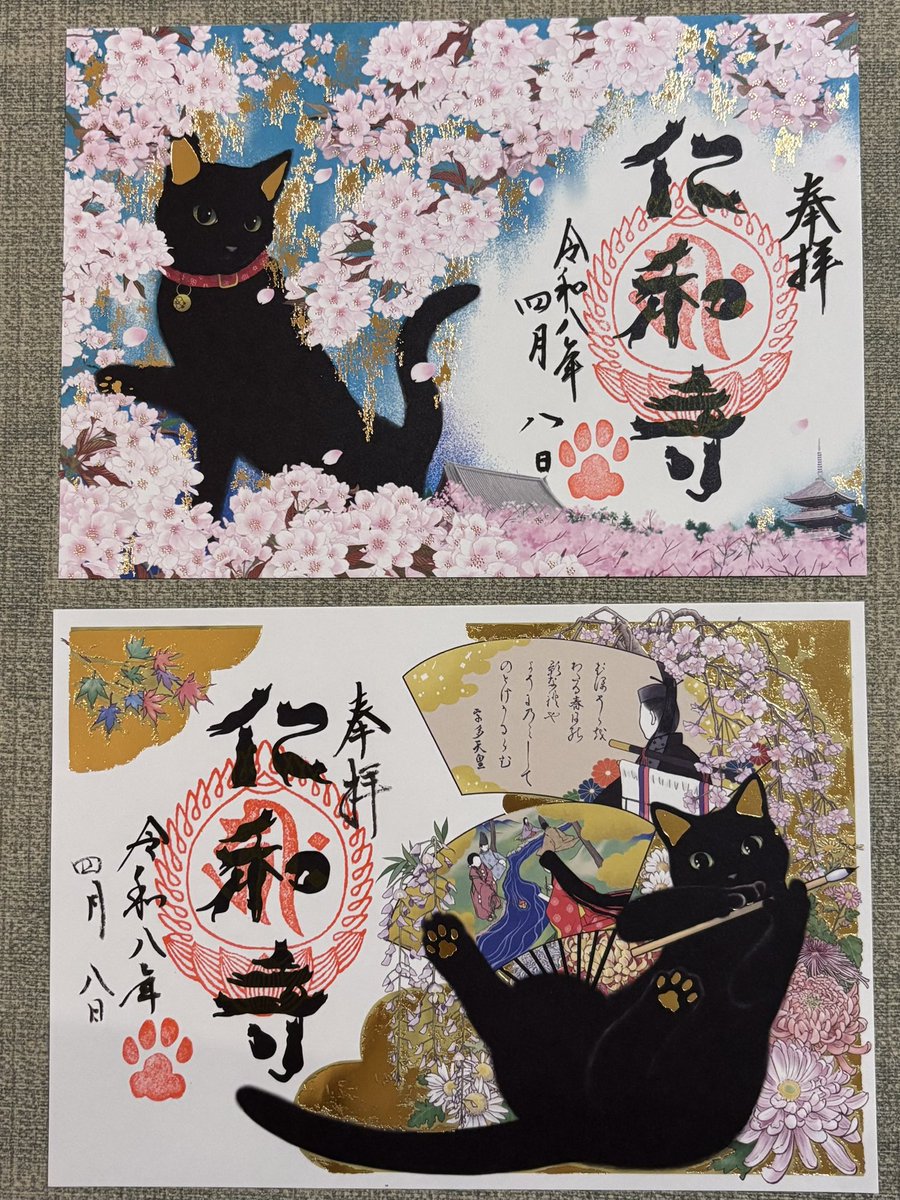 奉拝
仁和寺
令和八年
四月
八日
のとけかるらむ
宇多天皇
奉拝
仁和寺
令和八年
四月
八日